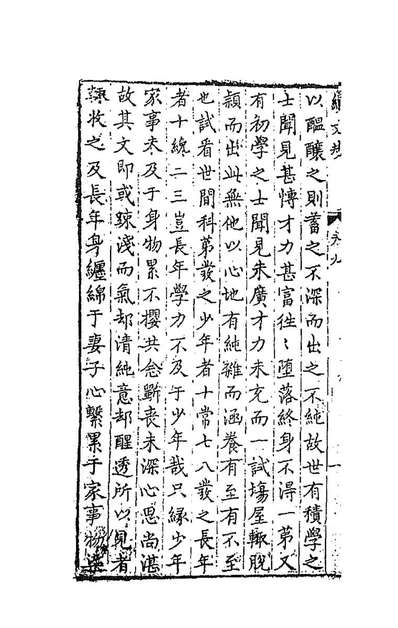 續文規 卷九
以醞釀之則蓄之不深而出之不純故世有積學之
士聞見甚博才力甚富徃〻堕落終身不得一第又
有初學之士聞見未廣才力未充而一試塲屋輙脫
穎而出此無他以心地有純雜而涵養有至有不至
也試看世間科第發之少年者十常七八發之長年
者十纔二三豈長年學力不及于少年哉只緣少年
家事未及于身物累不攖其念斵喪未深心思尚湛
故其文即或踈淺而氣却清純意却醒透所以見者
輙收之及長年身纏綿于妻子心繫累于家事物